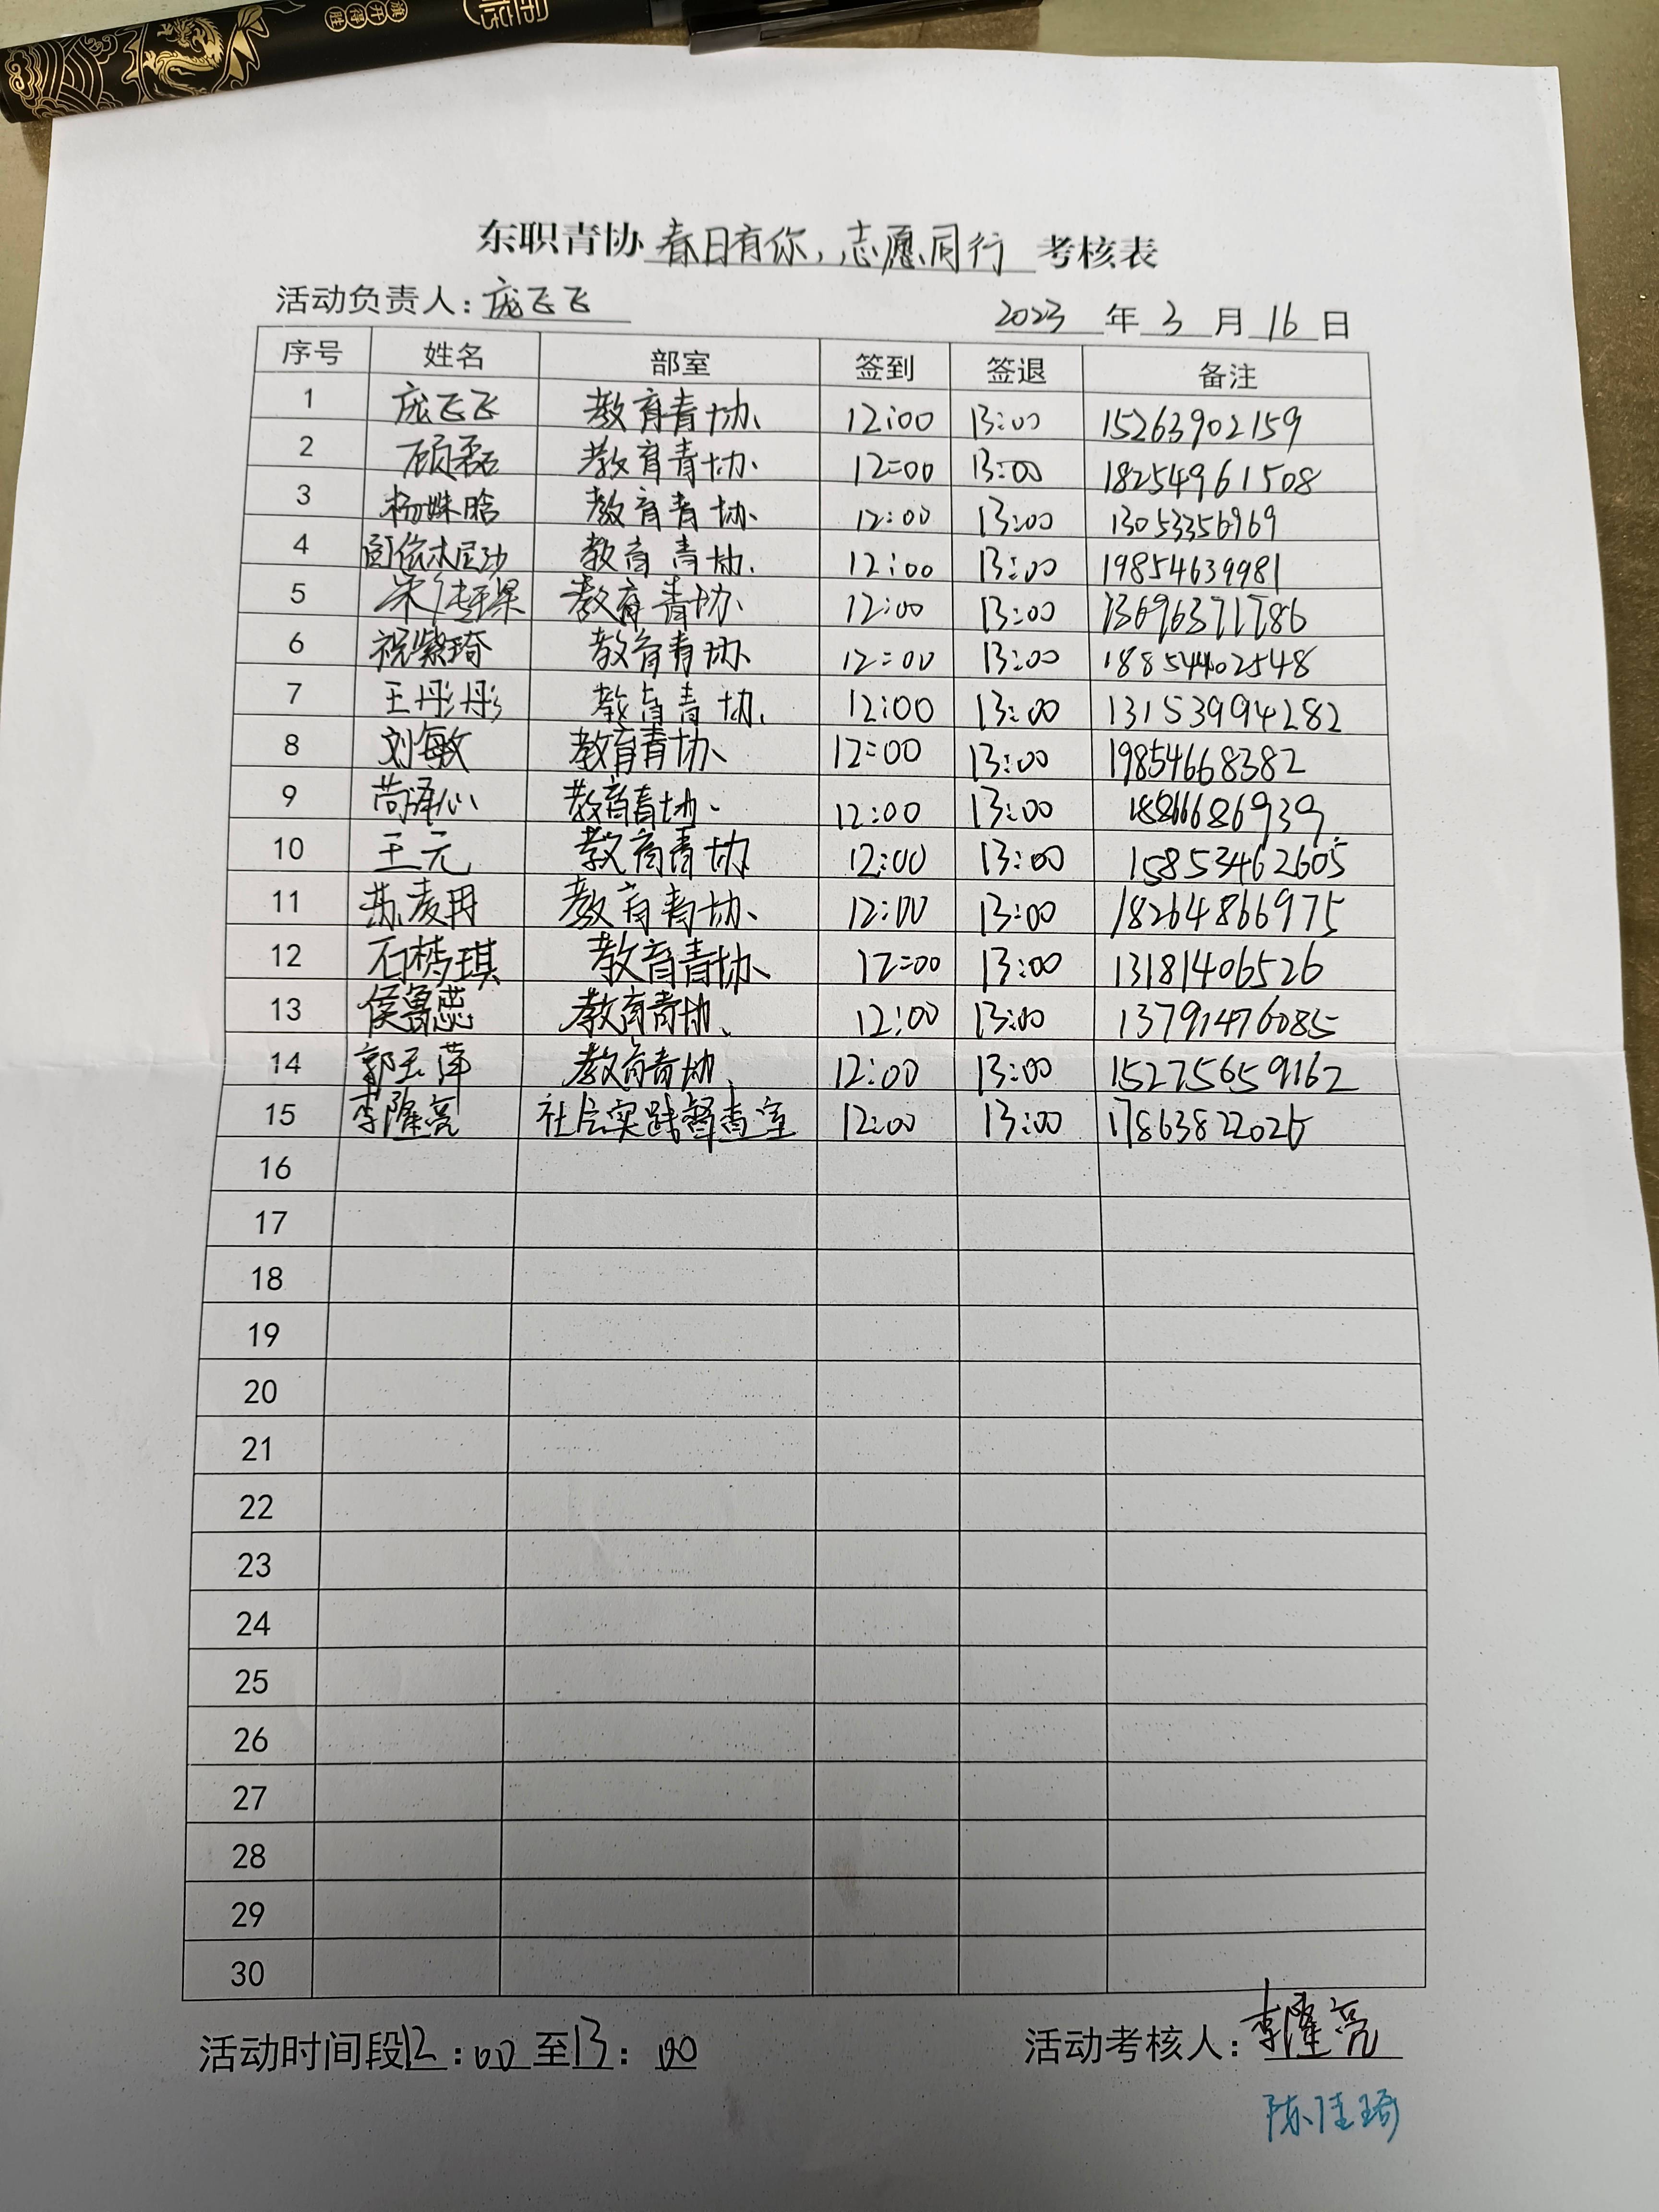 旗开得胜
东职青协 春日有你，志愿同行 考核表
活动负责人：庞飞飞 2023 年 3 月 16 日
序号 姓名 部室 签到 签退 备注
1 庞飞飞 教育青协 12:00 13:00 15263902159
2 顾磊 教育青协 12:00 13:00 18254961508
3 杨姝晗 教育青协 12:00 13:00 13053356969
4 教育青协 12:00 13:00 19854639981
5 教育青协 12:00 13:00 13696371786
6 祝紫琦 教育青协 12:00 13:00 18854402548
7 王彤彤 教育青协 12:00 13:00 131539994282
8 刘海敏 教育青协 12:00 13:00 19854668382
9 教育青协 12:00 13:00
10 王元 教育青协 12:00 13:00 15853462605
11 苏麦冉 教育青协 12:00 13:00 18264866975
12 石梦琪 教育青协 12:00 13:00 13181406526
13 侯鲁蕊 教育青协 12:00 13:00 13791476085
14 郭玉萍 教育青协 12:00 13:00 15275659162
15 李隆亮 社会实践督查室 12:00 13:00 17863822025
16
17
18
19
20
21
22
23
24
25
26
27
28
29
30
活动时间段12:00至13:00 活动考核人：李隆亮
陈佳琦